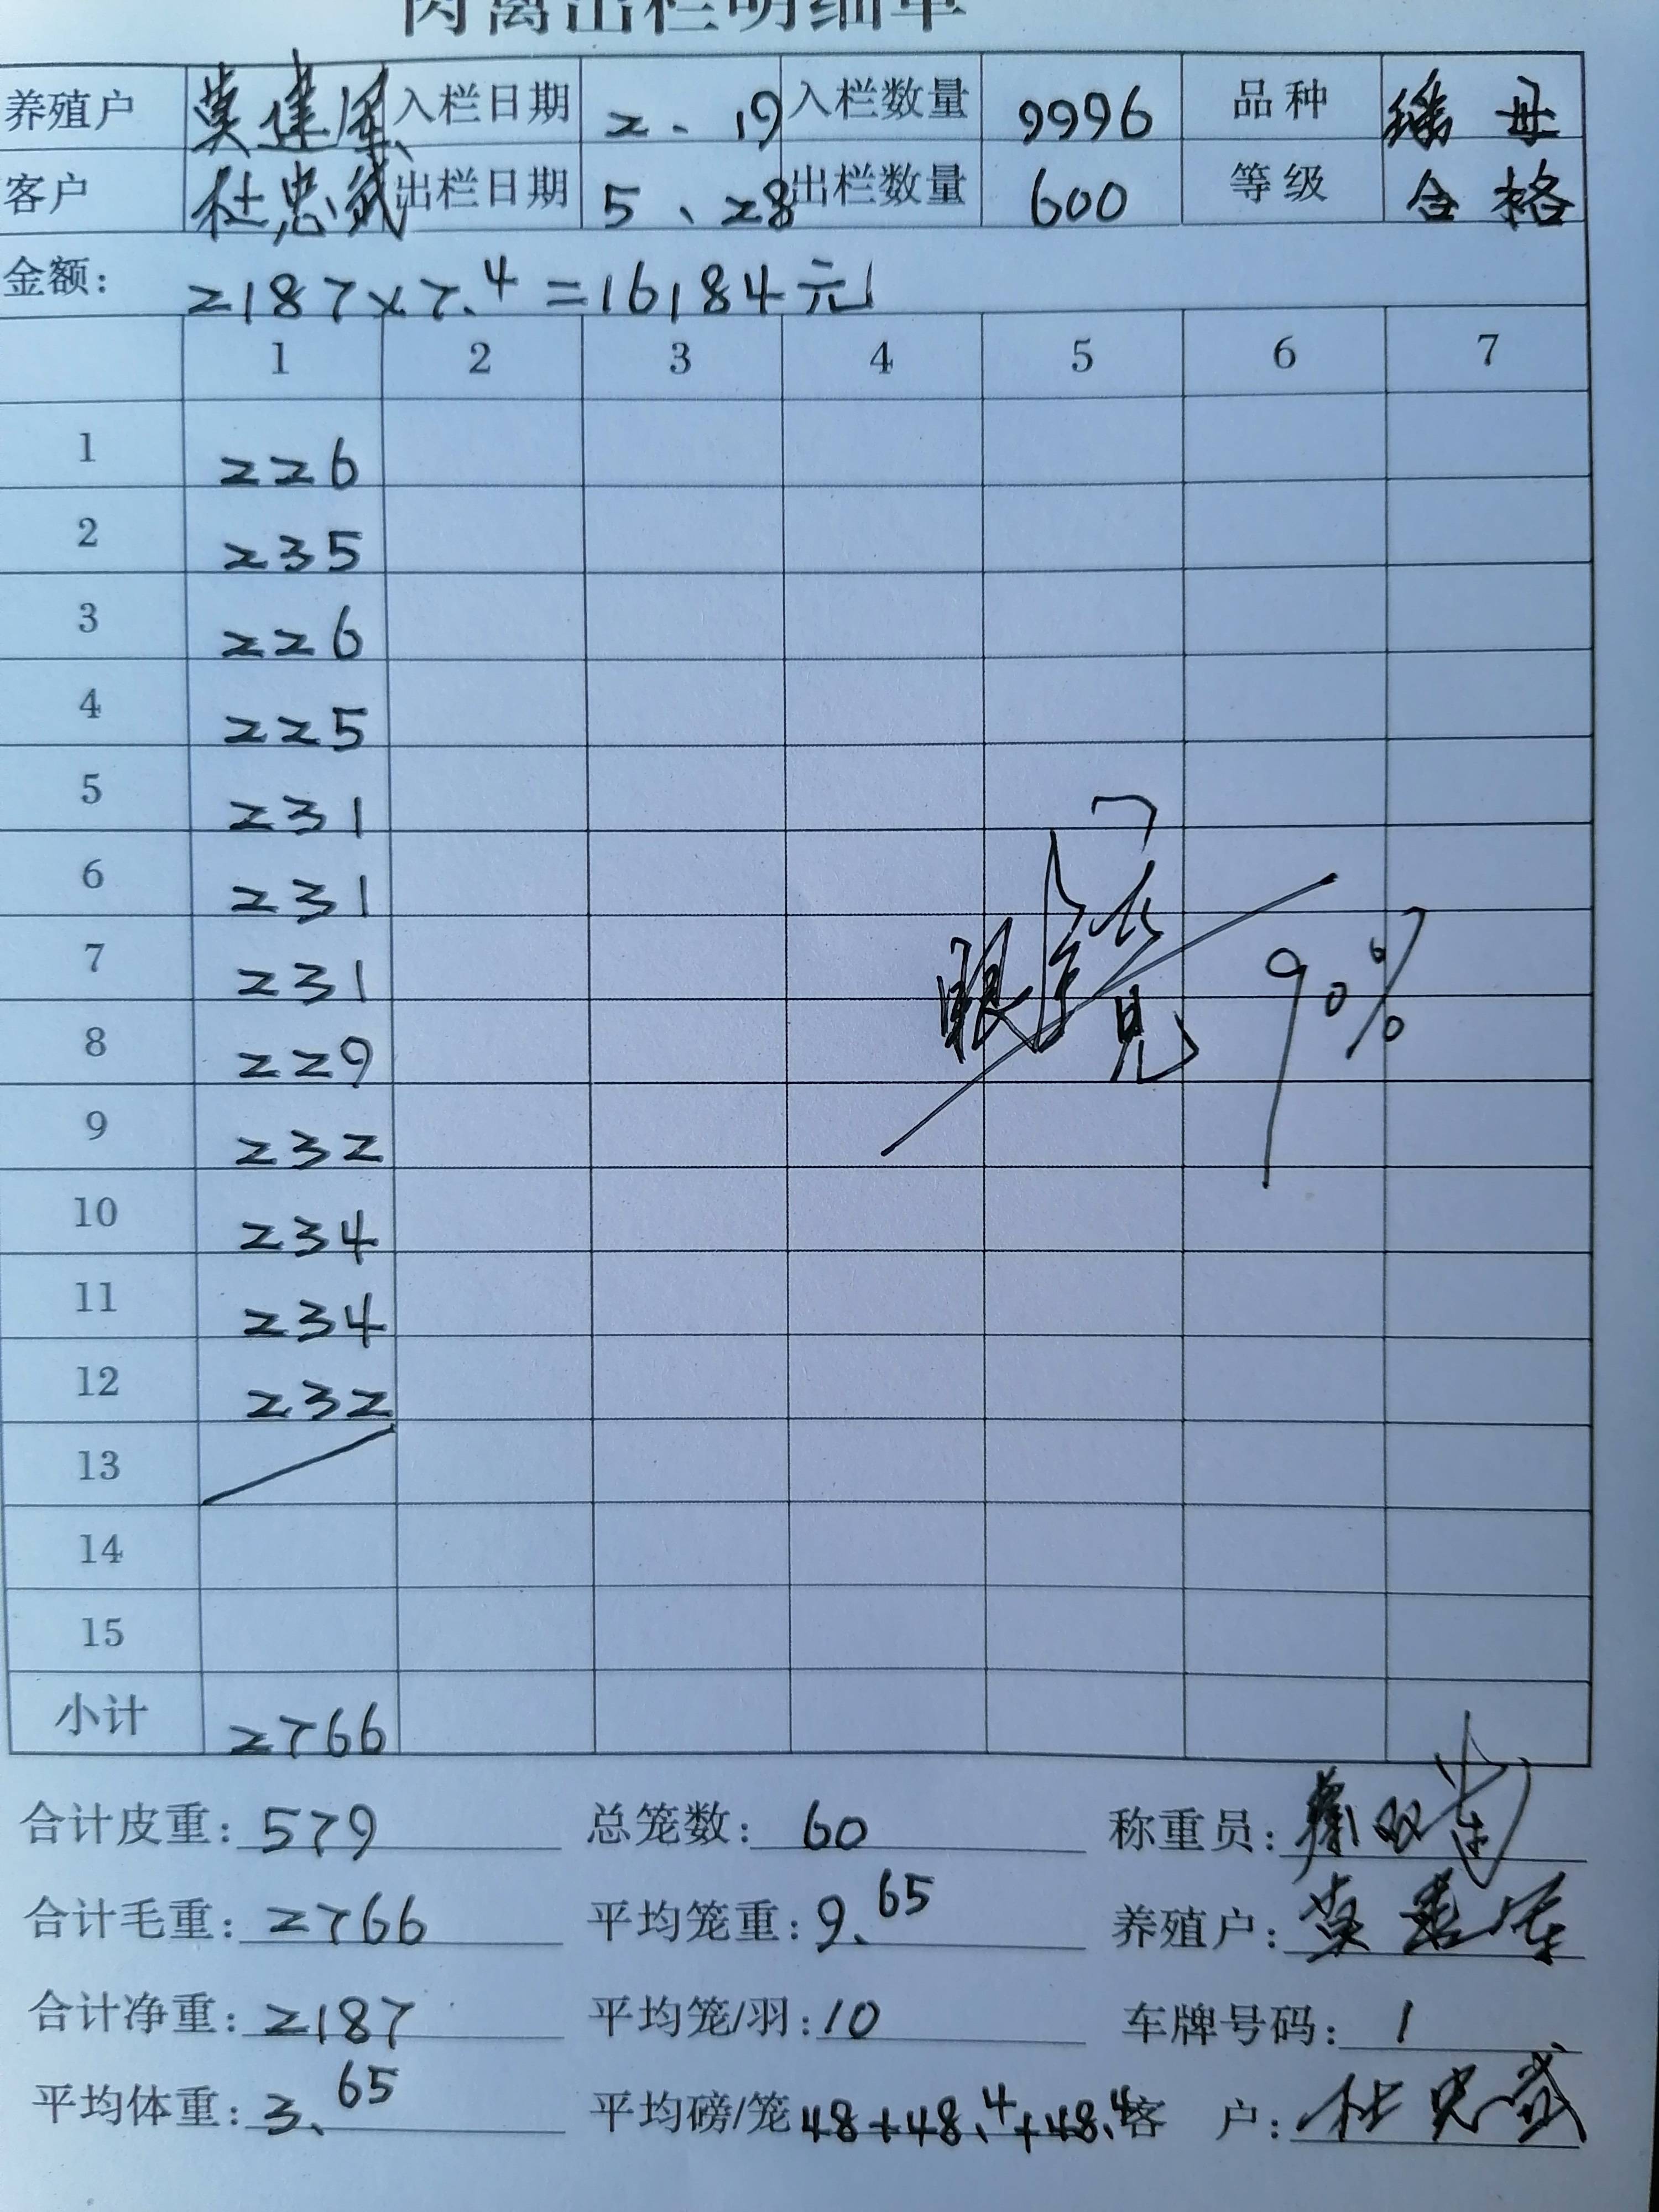 肉禽出栏明细单
养殖户 莫建 入栏日期 2、19 入栏数量 9996 品种 瑶母
客户 杜忠武 出栏日期 5、28 出栏数量 600 等级 合格
金额: 2187×7.4=16184元
1 2 3 4 5 6 7
1 226
2 235
3 226
4 225
5 231
6 231
7 231
8 229
9 232
10 234
11 234
12 232
13
14
15
90%
小计 2766
合计皮重: 579 总笼数: 60 称重员:
合计毛重: 2766 平均笼重: 9.65 养殖户: 莫
合计净重: 2187 平均笼/羽: 10 车牌号码: 1
平均体重: 3.65 平均磅/笼 48+48.4+48.4 客 户: 杜忠武